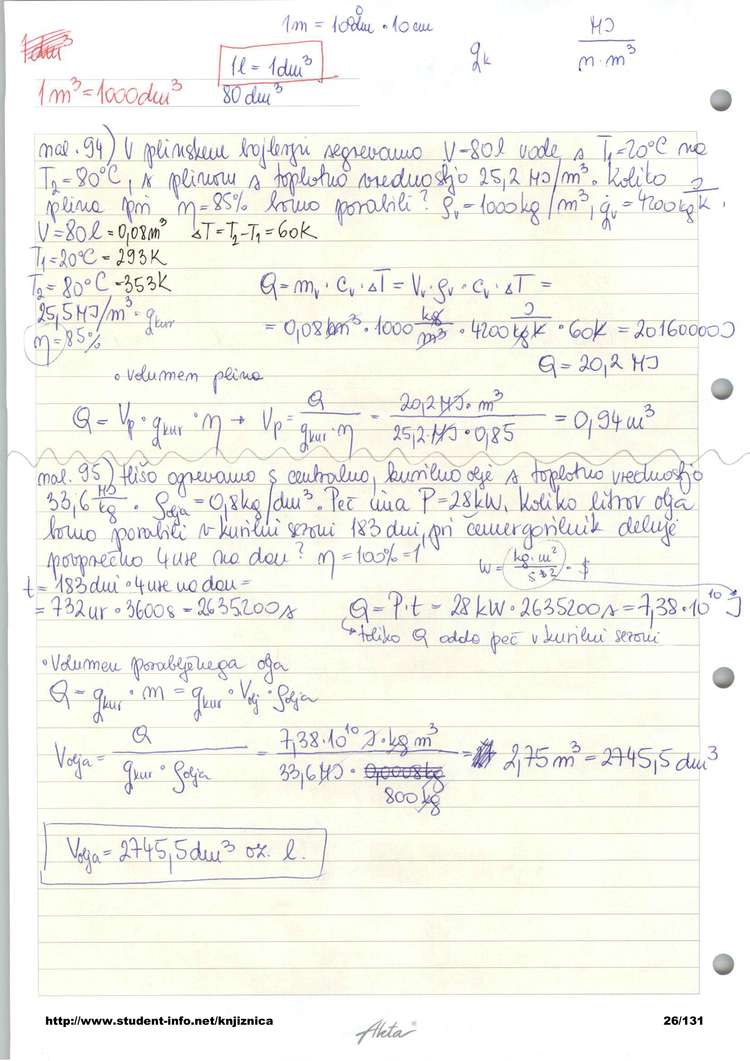 1m = 10dm · 10cm
MJ
n·m³
g_k
1l = 1dm³
1m³ = 1000dm³
80 dm³
nal. 94) V plinskem bojlerju segrevamo V=80l vode s T₁=20°C na
T₂=80°C, s plinom s toplotno vrednostjo 25,2 MJ/m³. Koliko
plina pri η=85% bomo porabili? ρ_v=1000kg/m³, g_v=4200 J/kgK.
V=80l=0,08m³ ΔT=T₂-T₁=60K
T₁=20°C=293K
T₂=80°C=353K
Q=m_v·c_v·ΔT=V_v·ρ_v·c_v·ΔT=
25,5 MJ/m³=q_kur
=0,08m³·1000 kg/m³·4200 J/kgK·60K=20160000J
η=85%
Q=20,2 MJ
•volumen plina
Q=V_p·q_kur·η → V_p= Q/(q_kur·η) = (20,2 MJ·m³)/(25,2·MJ·0,85) = 0,94m³
nal. 95) Hišo ogrevamo s centralno, kurilno olje s toplotno vrednostjo
33,6 MJ/kg. ρ_olja=0,8kg/dm³. Peč ima P=28kW. Koliko litrov olja
bomo porabili v kurilni sezoni 183 dni, pri čemer gorilnik deluje
povprečno 4 ure na dan? η=100%=1
W= kg·m²/s³2 · $
t=183dni·4ure na dan=
=732ur·3600s=2635200s
Q=P·t=28kW·2635200s=7,38·10¹⁰ J
↳toliko Q odda peč v kurilni sezoni
•Volumen porabljenega olja
Q=q_kur·m=q_kur·V_olj·ρ_olja
V_olja= Q/(q_kur·ρ_olja) = (7,38·10¹⁰ J·kg m³)/(33,6MJ·800kg) = 2,75m³=2745,5dm³
V_olja=2745,5dm³ oz. l.
http://www.student-info.net/knjiznica
Akta®
26/131